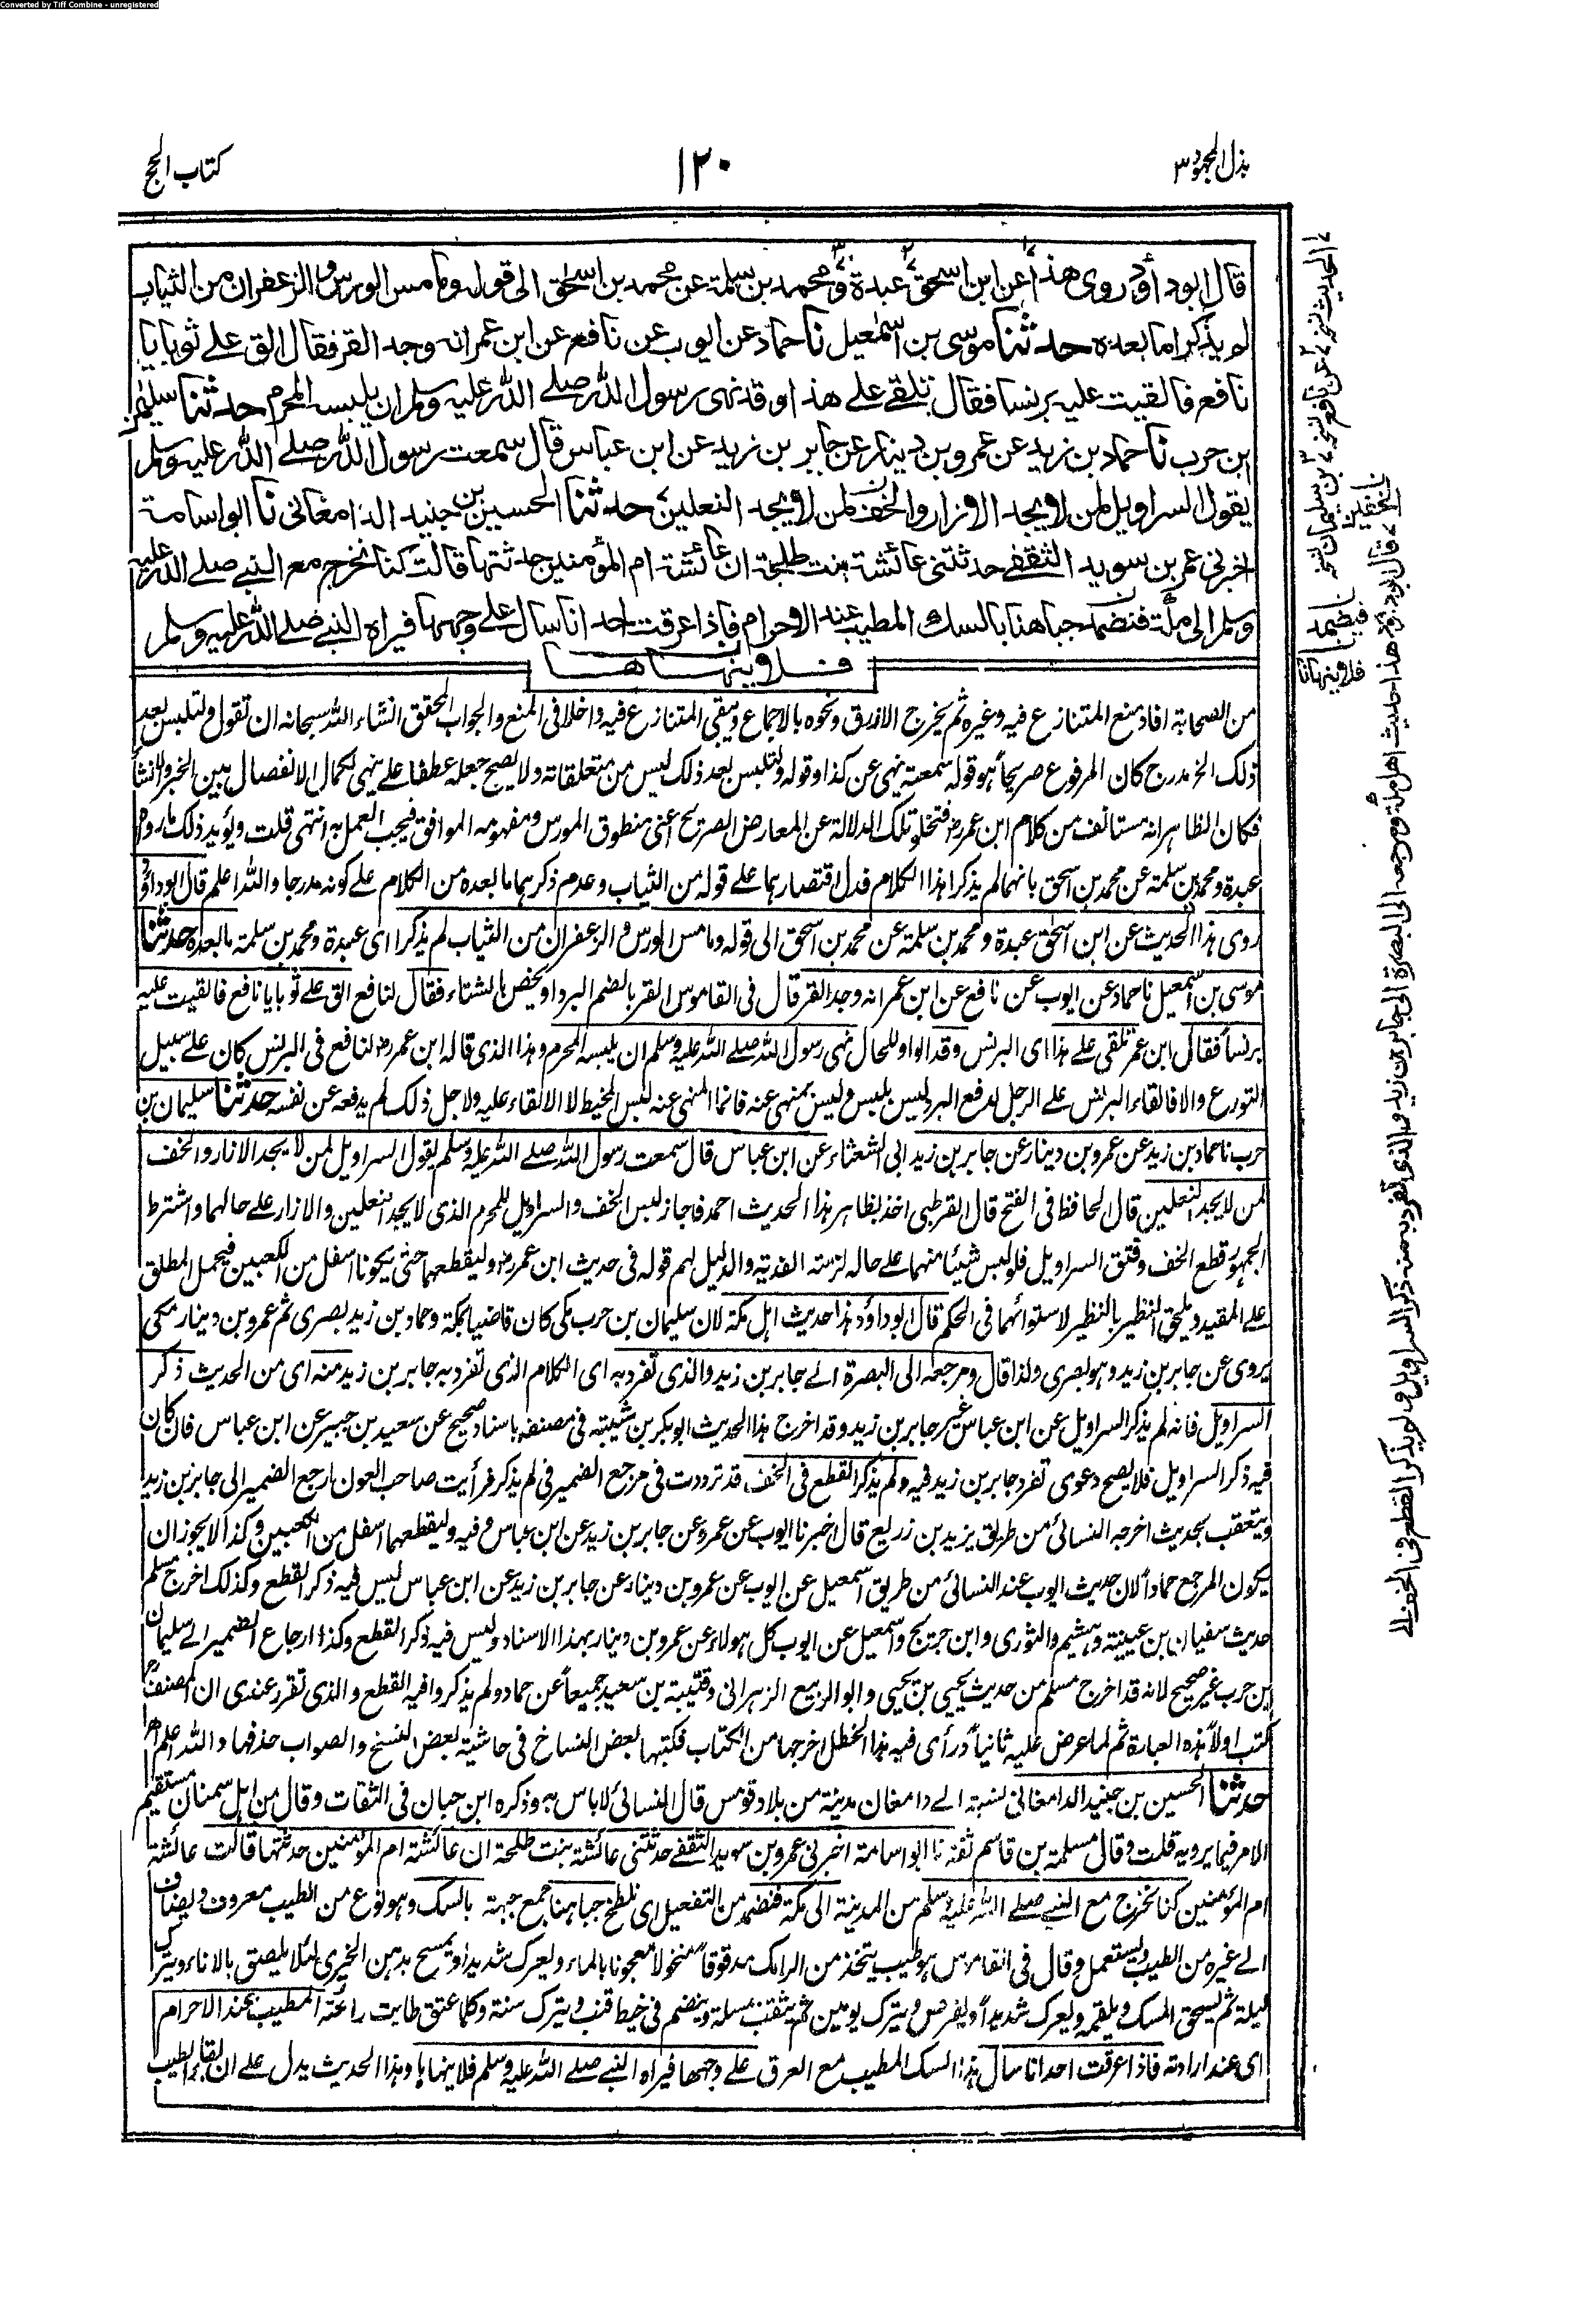 Converted by Tiff Combine - unregistered
بذل المجهود ٣
١٢٠
كتاب الحج
قال ابوداؤد روى هذا عن ابن اسحق عبدة ومحمد بن سلمة عن محمد بن اسحق الى قوله وما مس الورس والزعفران من الثياب
لم يذكرا ما بعده حدثنا موسى بن اسمعيل نا حماد عن ايوب عن نافع عن ابن عمر انه وجد القر فقال الق على ثوبا يا
نافع فالقيت عليه برنسا فقال تلقى على هذا وقد نهى رسول الله صلى الله عليه وسلم ان يلبسه المحرم حدثنا سليمن
ابن حرب نا حماد بن زيد عن عمرو بن دينار عن جابر بن زيد عن ابن عباس قال سمعت رسول الله صلى الله عليه وسلم
يقول السراويل لمن لا يجد الازار والخف لمن لا يجد النعلين حدثنا الحسين بن جنيد الدامغانى نا ابو اسامة
اخبرنى عمر بن سويد الثقفى حدثتنى عائشة بنت طلحة ان عائشة ام المؤمنين حدثتها قالت كنا نخرج مع النبى صلى الله عليه
وسلم الى مكة فنضمد جباهنا بالسك المطيب عند الاحرام فاذا عرقت احدانا سال على وجهها فيراه النبى صلى الله عليه وسلم
فلا ينهاها
من الصحابة افاد منع المتنازع فيه وغيره ثم يخرج الازرق ونحوه بالاجماع ويبقى المتنازع فيه داخلا فى المنع والجواب المحقق انشاء الله سبحانه ان تقول ولتلبس بعد
ذلك الخ مدرج كان المرفوع صريحا هو قوله سمعته ينهى عن كذا وقوله ولتلبس بعد ذلك ليس من متعلقاته ولا يصح جعله عطفا على ينهى لكمال الانفصال بين الخبر والانشاء
فكان الظاهر انه مستانف من كلام ابن عمر رض فتخلو تلك الدلالة عن المعارض الصريح اعنى منطوق المورس ومفهومه الموافق فيجب العمل به انتهى قلت ويؤيد ذلك ما روى
عبدة ومحمد بن سلمة عن محمد بن اسحق بانهما لم يذكرا هذا الكلام فدل اقتصارهما على قوله من الثياب وعدم ذكرهما ما بعده من الكلام على كونه مدرجا والله اعلم قال ابوداؤد
روى هذا الحديث عن ابن اسحق عبدة ومحمد بن سلمة عن محمد بن اسحق الى قوله وما مس الورس والزعفران من الثياب لم يذكرا اى عبدة ومحمد بن سلمة ما بعده حدثنا
موسى بن اسمعيل نا حماد عن ايوب عن نافع عن ابن عمر انه وجد القر قال فى القاموس القر بالضم البرد او يخص بالشتاء فقال لنافع الق على ثوبا يا نافع فالقيت عليه
برنسا فقال ابن عمر تلقى على هذا اى البرنس وقد الواو للحال نهى رسول الله صلى الله عليه وسلم ان يلبسه المحرم وهذا الذى قاله ابن عمر رض لنافع فى البرنس كان على سبيل
التورع والا فالقاء البرنس على الرجل لدفع البرد ليس بلبس وليس بمنهى عنه فانما المنهى عنه لبس المخيط لا الالقاء عليه ولاجل ذلك لم يدفعه عن نفسه حدثنا سليمان بن
حرب نا حماد بن زيد عن عمرو بن دينار عن جابر بن زيد ابى الشعثاء عن ابن عباس قال سمعت رسول الله صلى الله عليه وسلم يقول السراويل لمن لا يجد الازار والخف
لمن لا يجد النعلين قال الحافظ فى الفتح قال القرطبى اخذ بظاهر هذا الحديث احمد فاجاز لبس الخف والسراويل للمحرم الذى لا يجد النعلين والازار على حالهما واشترط
الجمهور قطع الخف وفتق السراويل فلو لبس شيئا منهما على حاله لزمته الفدية والدليل لهم قوله فى حديث ابن عمر رض وليقطعهما حتى يكونا اسفل من الكعبين فيحمل المطلق
على المقيد ويلحق النظير بالنظير لاستوائهما فى الحكم قال ابوداؤد هذا حديث اهل مكة لان سليمان بن حرب مكى كان قاضيا بمكة وحماد بن زيد بصرى ثم عمرو بن دينار مكى
يروى عن جابر بن زيد وهو بصرى ولذا قال ومرجعه الى البصرة الى جابر بن زيد والذى تفرد به اى الكلام الذى تفرد به جابر بن زيد منه اى من الحديث ذكر
السراويل فانه لم يذكر السراويل عن ابن عباس غير جابر بن زيد وقد اخرج هذا الحديث ابوبكر بن شيبة فى مصنفه باسناد صحيح عن سعيد بن جبير عن ابن عباس فان كان
فيه ذكر السراويل فلا يصح دعوى تفرد جابر بن زيد فيه ولم يذكر القطع فى الخف قد ترددت فى مرجع الضمير فى لم يذكر فرأيت صاحب العون ارجع الضمير الى جابر بن زيد
ويتعقب بحديث اخرجه النسائى من طريق يزيد بن زريع قال اخبرنا ايوب عن عمرو عن جابر بن زيد عن ابن عباس وفيه وليقطعهما اسفل من الكعبين وكذا لا يجوز ان
يكون المرجع حمادا لان حديث ايوب عند النسائى من طريق اسمعيل عن ايوب عن عمرو بن دينار عن جابر بن زيد عن ابن عباس ليس فيه ذكر القطع وكذلك اخرج مسلم
حديث سفيان بن عيينة وهشيم والثورى وابن جريج واسمعيل عن ايوب كل هولاء عن عمرو بن دينار بهذا الاسناد وليس فيه ذكر القطع وكذا ارجاع الضمير الى سليمان
بن حرب غير صحيح لانه قد اخرج مسلم من حديث يحيى بن يحيى وابو الربيع الزهرانى وقتيبة بن سعيد جميعا عن حماد ولم يذكروا فيه القطع والذى تقرر عندى ان المصنف
كتب اولا هذه العبارة ثم لما عرض عليه ثانيا ورأى فيه هذا الخطل اخرجها من الكتاب فكتبها بعض النساخ فى حاشية بعض النسخ والصواب حذفها والله اعلم
حدثنا الحسين بن جنيد الدامغانى نسبة الى دامغان مدينة من بلاد قومس قال النسائى لا باس به وذكره ابن حبان فى الثقات وقال من اهل سمنان مستقيم
الامر فيما يرويه قلت وقال مسلمة بن قاسم ثقة نا ابو اسامة اخبرنى عمرو بن سويد الثقفى حدثتنى عائشة بنت طلحة ان عائشة ام المؤمنين حدثتها قالت عائشة
ام المؤمنين كنا نخرج مع النبى صلى الله عليه وسلم من المدينة الى مكة فنضمد من التفعيل اى نلطخ جباهنا جمع جبهة بالسك وهو نوع من الطيب معروف ويضاف
الى غيره من الطيب ويستعمل وقال فى القاموس هو طيب يتخذ من الرامك مدقوقا منخولا معجونا بالماء ويعرك شديدا ويمسح بدهن الخيرى لئلا يلصق بالاناء ويترك
ليلة ثم يسحق المسك ويلقمه ويعرك شديدا ويقرص ويترك يومين ثم يثقب بمسلة وينضم فى خيط قنب ويترك سنة وكلما عتق طابت رائحته المطيب عند الاحرام
اى عند ارادته فاذا عرقت احدانا سال هذا السك المطيب مع العرق على وجهها فيراه النبى صلى الله عليه وسلم فلا ينهاها وهذا الحديث يدل على ان بقاء الطيب
الحديث نسخه عن نافع نسخه بن سليمان نسخه
الخفين
فيضمد
فلا ينهانا
قال ابوداؤد هذا حديث اهل مكة ومرجعه الى البصرة الى جابر بن زيد والذى تفرد به منه ذكر السراويل ولم يذكر القطع فى الخف